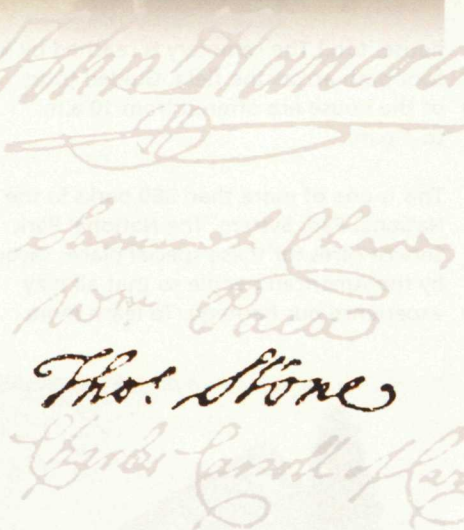 John Hancoc
Samuel Chase
Wm Paca
Thos. Stone
Charles Carroll of Car